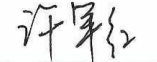 许军红